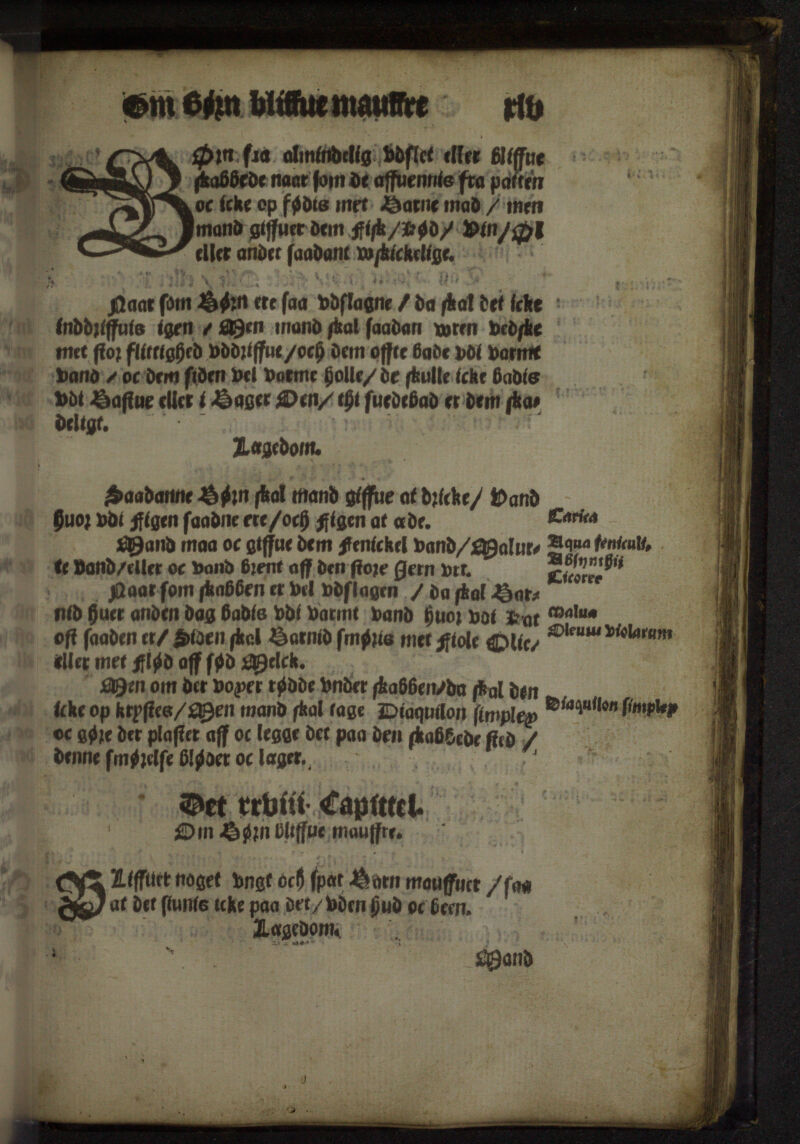 Om Børn bliffue mauffre xlv
BØrn fra almindelig vdslet eller bliffue
skabbede naar som de affuennis fra patten
oc icke op fødis met Barne mad / men
mand giffuer dem Fisk/Kød/ Vin/Øl
eller ander saadant wskickelige.
Naar som Børn ere saa vdslagne / da skal det icke
inddriffuis igen / Men mand skal saadan woren vedske
met stor flittighed vddriffue/och dem offte bade vdi varmt
vand / oc dem siden vel varme holle/ de skulle icke badis
vdi Bastue eller i Bager Oen/ thi suedebad er dem skas
deligt.
Lægedom.
Saadanne Børn skal mand giffue at dricke/ Vand
huor vdi Figen saadne ere/och Figen at æde. Carica
Mand maa oc giffue dem Fenickel vand/Malurs Aqua feniculi,
te Vand/eller oc vand brent aff den store Gern vrt. Absynthii Cicoree
Naar som skabben er vel vdslagen / da skal Bars
nid huer anden dag badis vdi varmt vand huor vdi Kat Malua
ost saaden er/ Siden skal Barnid smøris met Fiole Olie/ Oleum violarum
eller met Flød aff sød Melck.
Men om der vorper rødde vnder skabben/da skal den
icke op krystes/Men mand skal tage Diaquilon simplex Diaquilon simplex
oc gøre der plaster aff oc legge det paa den skabbede sted /
denne smørelse bløder oc læger.
Det xxviii. Capittel.
Om Børn bliffue mauffre.
BLiffuer noget vngt och spæt Barn mauffuer / saa
at det siunis icke paa det/vden hud oc been.
Lægedom.
Mand